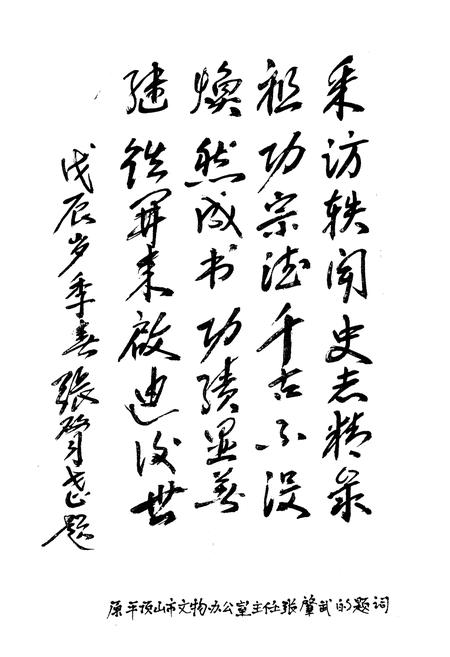 采访轶闻史志精录
祖功宗德千古不没
焕然成书功绩显著
继往开来启迪后世
戊辰岁季春张肇武题
原平顶山市文物办公室主任张肇武的题词